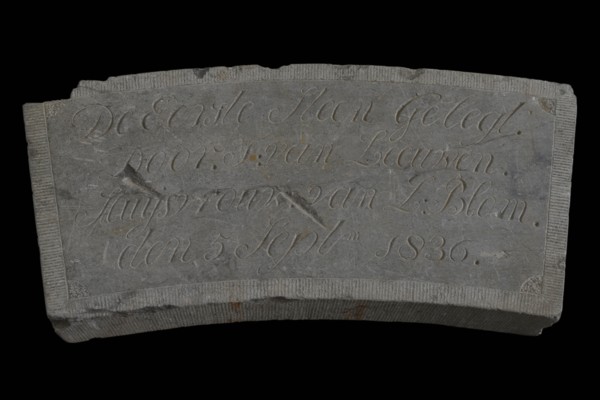 De Eerste Steen Gelegt.
door. S. van Leeuwen.
Huijsvrouw. van L: Blom.
den 5 Septbr 1836.